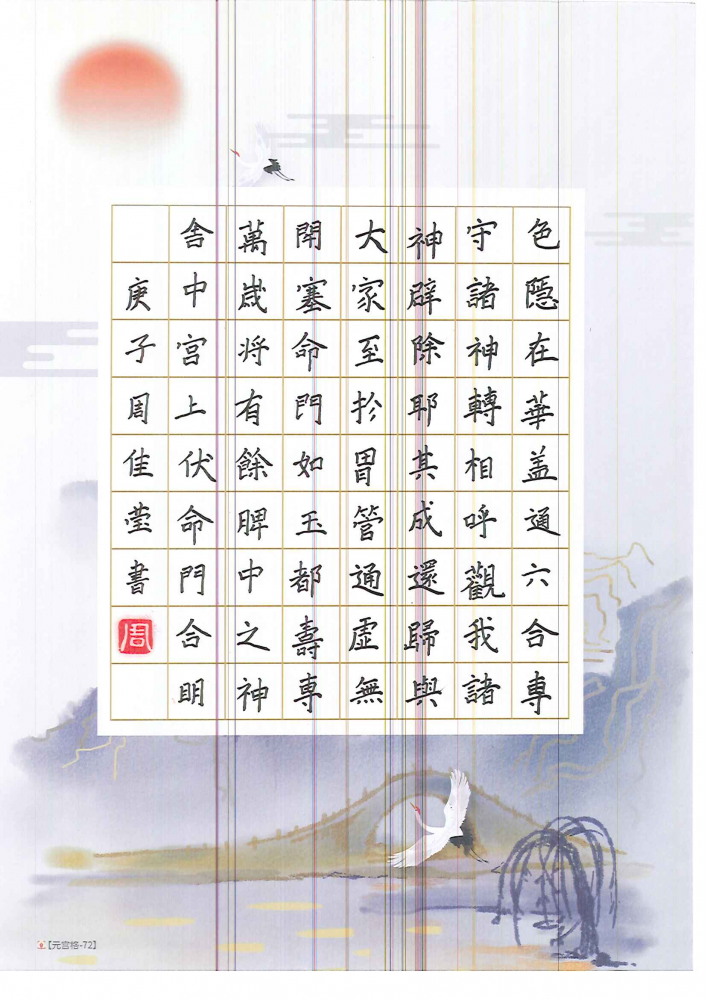 色隱在華盖通六合專
守諸神轉相呼觀我諸
神辟除耶其成還歸與
大家至扵胃管通虛無
閇塞命門如玉都壽專
萬歲将有餘脾中之神
舍中宮上伏命門合明
庚子周佳莹書
周
【元宫格-72】